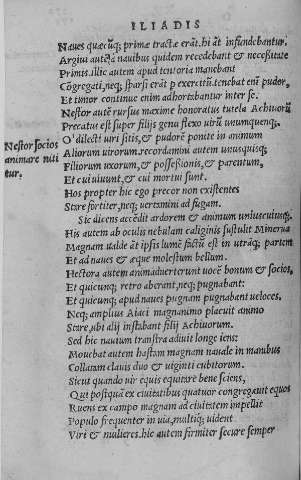 ILIADIS
Naues quæcũq; primæ tractæ erãt. hi ãt infundebantur.
Argiui autẽ a nauibus quidem recedebant & neceßitate
Primis. illic autem apud tentoria manebant
Cogregati, neq; sparsi erãt p exercitũ. tenebat eni pudor,
Et timor continue enim adhortabantur inter se.
Nestor autẽ rursus maxime honoratus tutela Achiuorũ
Precatus est super filijs genu flexo uirũ unumquenq;.
Nestor socios
animare niti
tur.
O' dilecti uiri sitis, & pudorẽ ponite in animum
Aliorum uirorum. recordamini autem unusquisq;
Filiorum uxorum, & poßeßionis, & parentum,
Et cui uiuunt, & cui mortui sunt.
Hos propter hic ego precor non existentes
Stare fortiter, neq; uertamini ad fugam.
Sic dicens accẽdit ardorem & animum uniuscuiusq;.
His autem ab oculis nebulam caliginis sustulit Minerua
Magnam. ualde ãt ipsis lumẽ factũ est in utraq; partem
Et ad naues & æque molestum bellum.
Hectora autem animaduerterunt uocẽ bonum & socios,
Et quicunq; retro aberant, neq; pugnabant:
Et quicunq; apud naues pugnam pugnabant ueloces.
Neq; amplius Aiaci magnanimo placuit animo
Stare, ubi alij instabant filij Achiuorum.
Sed hic nauium transtra adiuit longe iens:
Mouebat autem hastam magnam naualẽ in manibus
Collatam clauis duo & uiginti cubitorum.
Sicut quando uir equis equitare bene sciens,
Qui postquã ex ciuitatibus quatuor congregauit equos
Ruens ex campo magnam ad ciuitatem impellit
Populo frequenter in uia, multiq; uident
Viri & mulieres. hic autem firmiter secure semper